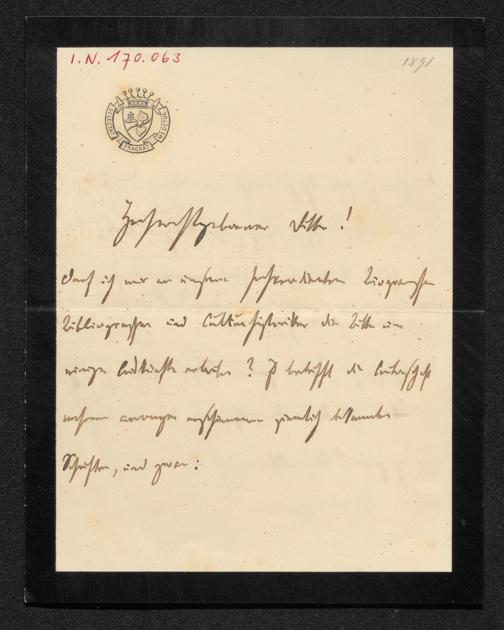 I.N. 170.063
1891
TRACTAT
Hochwohlgeborner Ritter!
Darf ich mir an unseren hochverdienten Biographen
Bibliographen und Culturhistoriker die Bitte um
einige Auskünfte erlauben? Es betrifft die Autorschaft
mehrerer anonym erschienenen ziemlich bekannter
Schriften, und zwar: